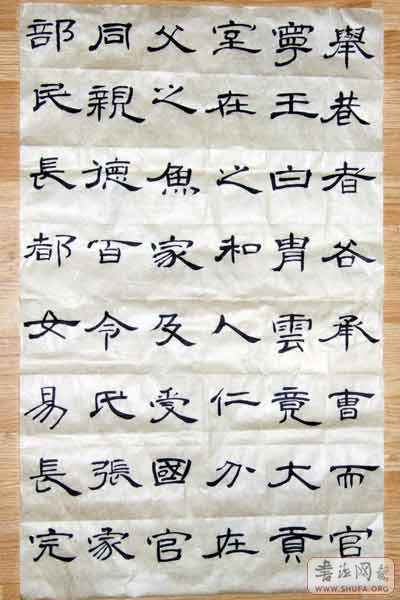 舉巷者谷承曹而官
寧王白胄雲竟大貢
室在之和人仁分在
父之魚家及受國官
同親德百令氏張家
部民長都女易長完
書法网
WWW.SHUFA.ORG